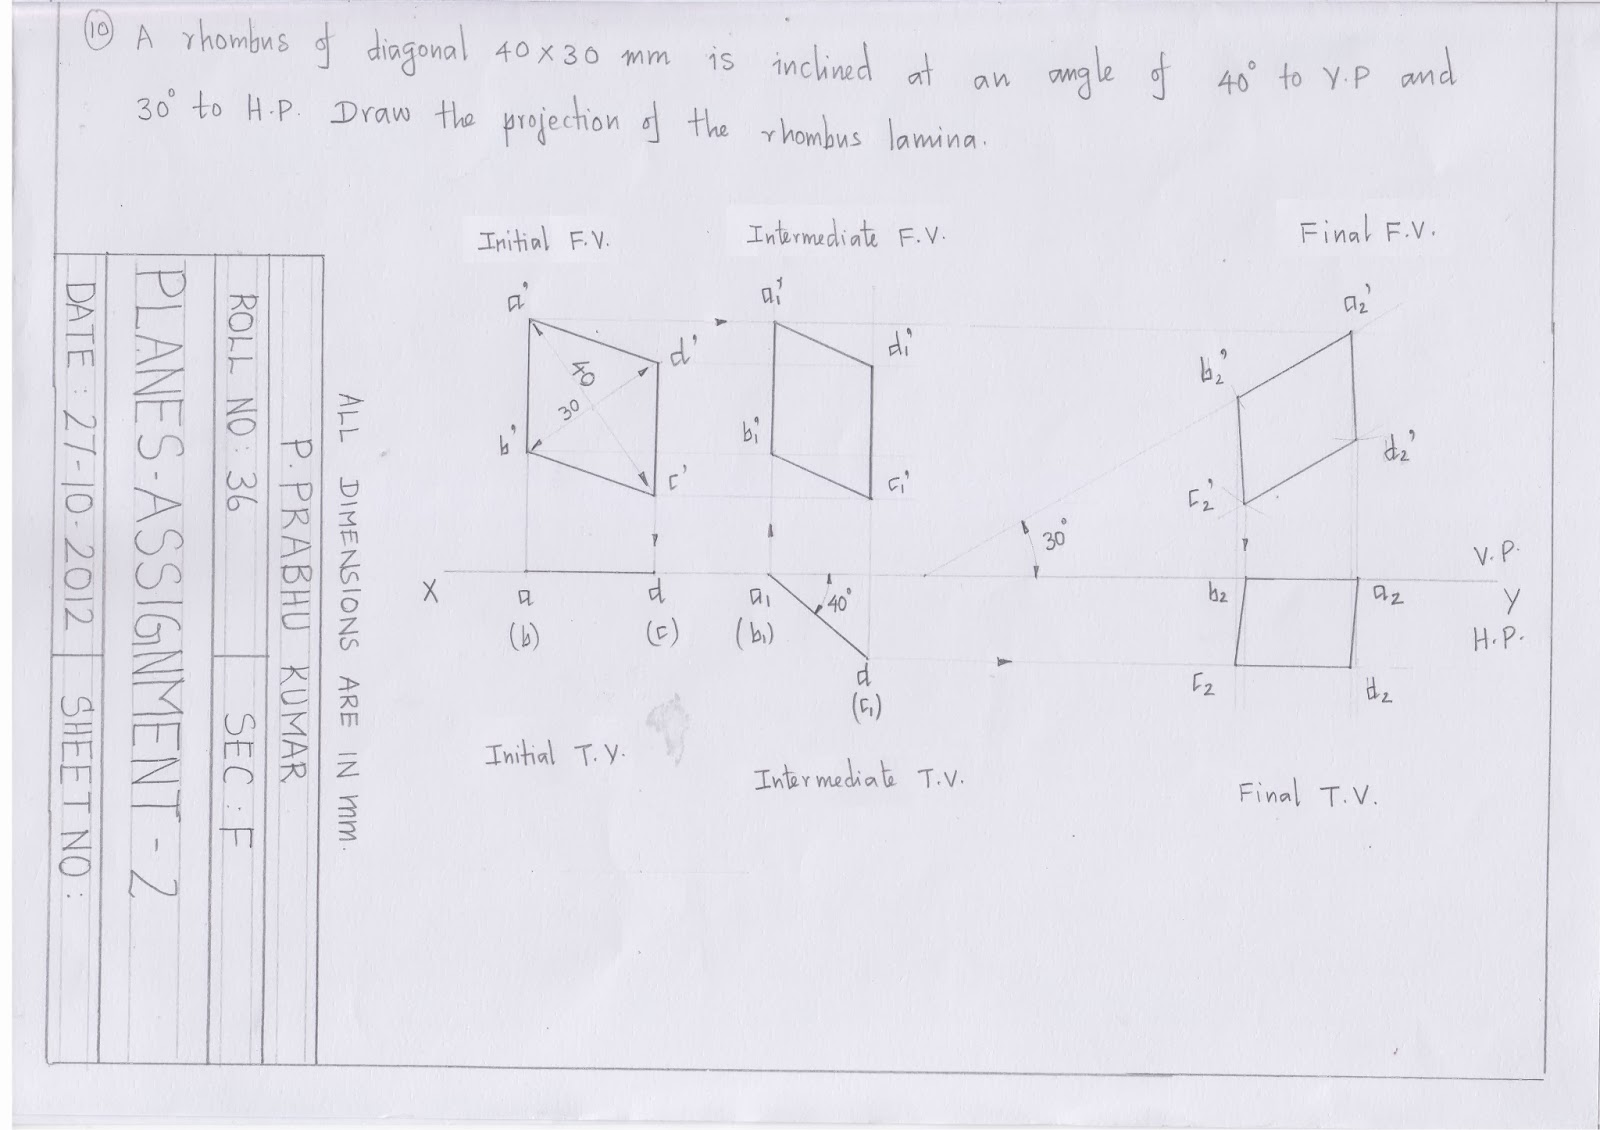 10 A rhombus of diagonal 40 x 30 mm is inclined at an angle of 40° to V.P and
30° to H.P. Draw the projection of the rhombus lamina.
Initial F.V.
Intermediate F.V.
Final F.V.
a'
d'
b'
c'
40
30
a1'
d1'
b1'
c1'
a2'
b2'
d2'
c2'
30°
X
a
(b)
d
(c)
a1
(b1)
40°
d
(c1)
b2
a2
c2
d2
V.P.
Y
H.P.
Initial T.V.
Intermediate T.V.
Final T.V.
ALL DIMENSIONS ARE IN mm.
P. PRABHU KUMAR
ROLL NO: 36
SEC: F
PLANES-ASSIGNMENT-2
DATE: 27-10-2012
SHEET NO: